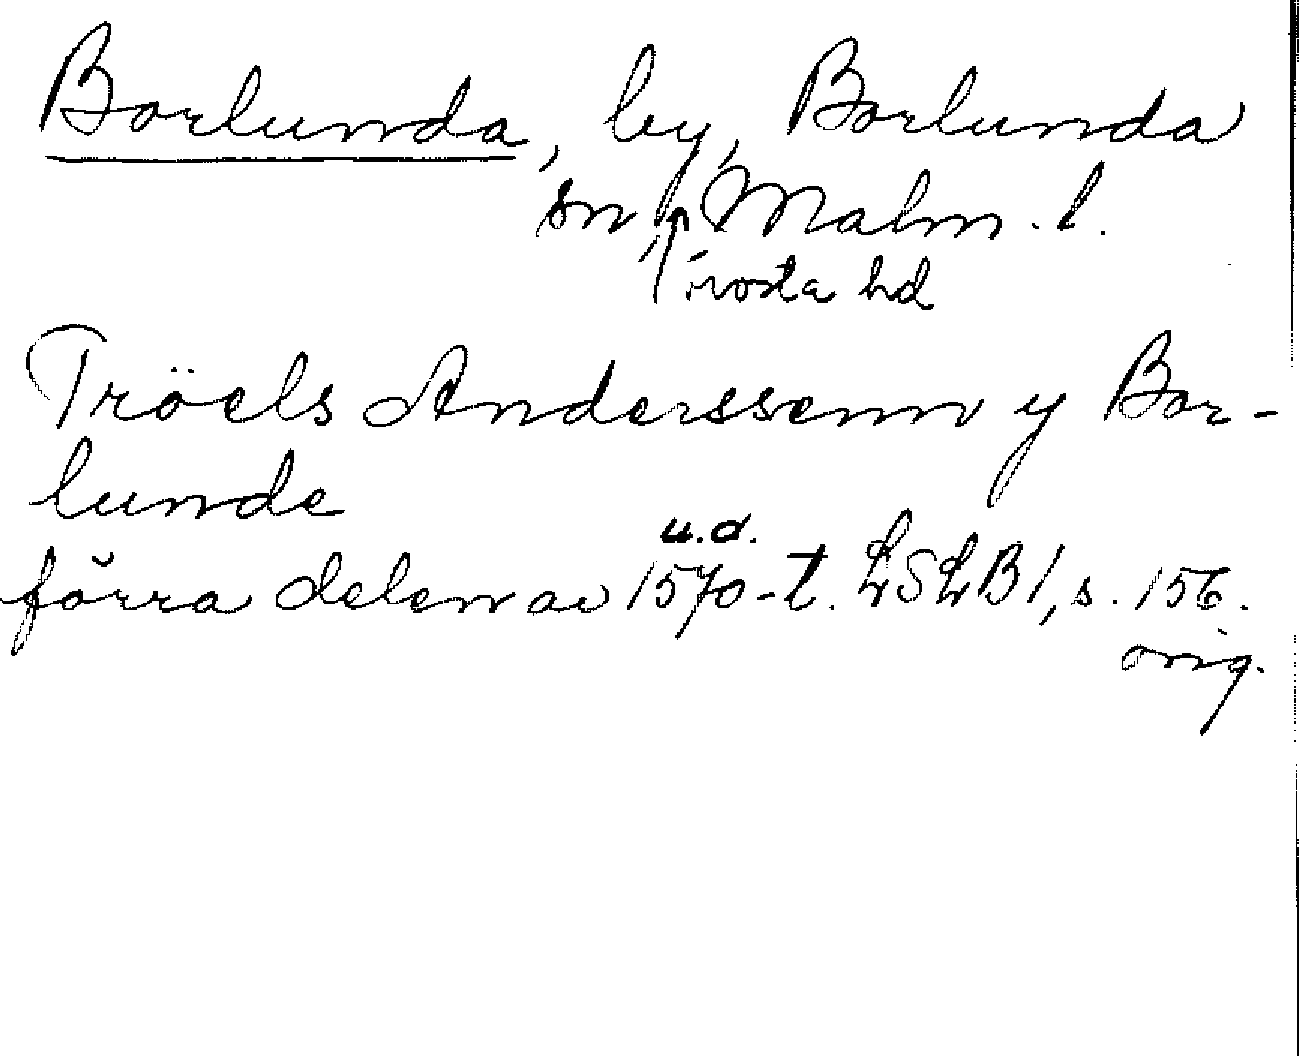 Borlunda, by, Borlunda
sn, Malm. l.
Frosta hd
Tröels Anderssenn y Bor-
lunde
u.d.
förra delen av 1570-t. LSLB 1, s. 156.
orig.